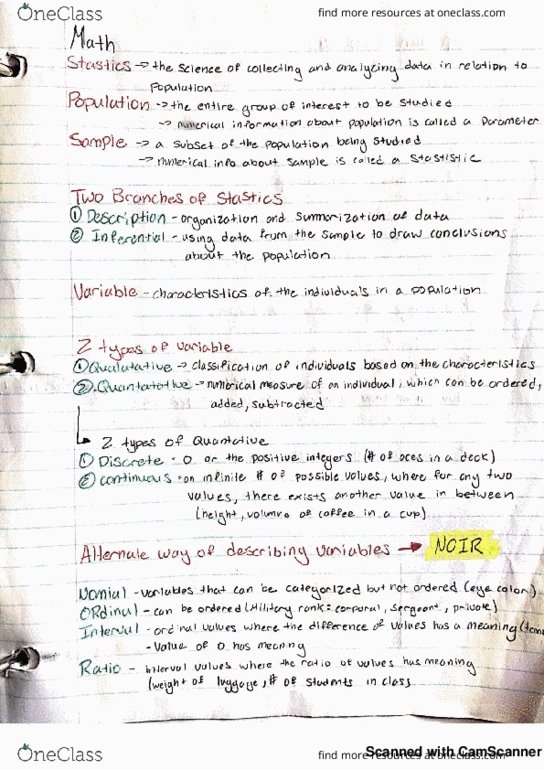 OneClass
find more resources at oneclass.com
Math
Stastics -> the science of collecting and analyzing data in relation to
Population
Population -> the entire group of interest to be studied
-> numerical information about population is called a Parameter
Sample -> a subset of the population being studied
-> numerical info about sample is called a stastistic
Two Branches of Stastics
① Description - organization and summorization of data
② Inferential - using data from the sample to draw conclusions
about the population
Variable - characteristics of the individuals in a population
2 types of variable
① Qualatative -> classification of individuals based on the characteristics
② Quantatative -> numerical measure of an individual, which can be ordered,
added, subtracted
2 types of Quantative
① Discrete - 0 or the positive integers (# of aces in a deck)
② continuous - an infinite # of possible values, where for any two
values, there exists another value in between
(height, volume of coffee in a cup)
Alternate way of describing variables → NOIR
Nomial - variables that can be categorized but not ordered (eye color)
ORdinal - can be ordered (Military rank = corporal, sergeant, private)
Interval - ordinal values where the difference of values has a meaning
- value of 0 has meaning
Ratio - interval values where the ratio of values has meaning
(weight of luggage, # of students in class
OneClass
find more resources at oneclass.com
Scanned with CamScanner